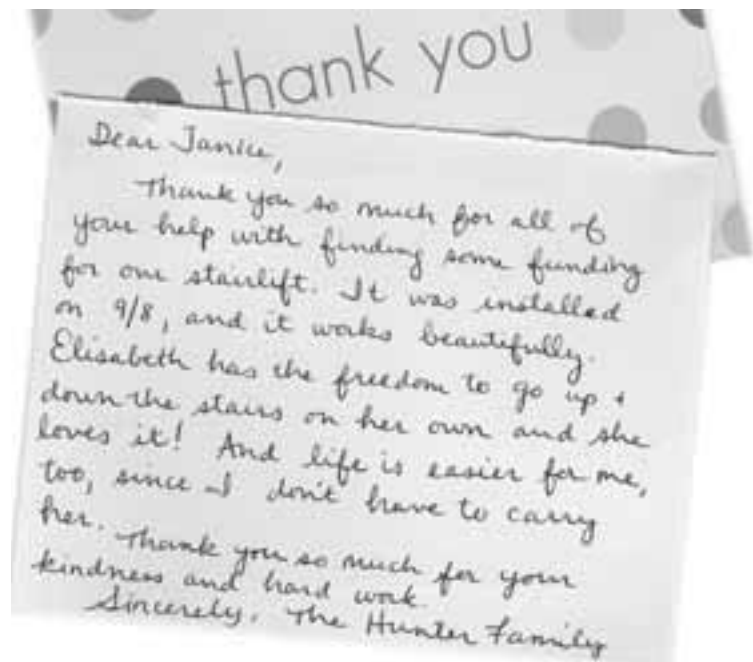 thank you
Dear Janice,
Thank you so much for all of
your help with finding some funding
for our stairlift. It was installed
on 9/8, and it works beautifully.
Elisabeth has the freedom to go up +
down the stairs on her own and she
loves it! And life is easier for me,
too, since I don't have to carry
her. Thank you so much for your
kindness and hard work.
Sincerely, The Hunter Family